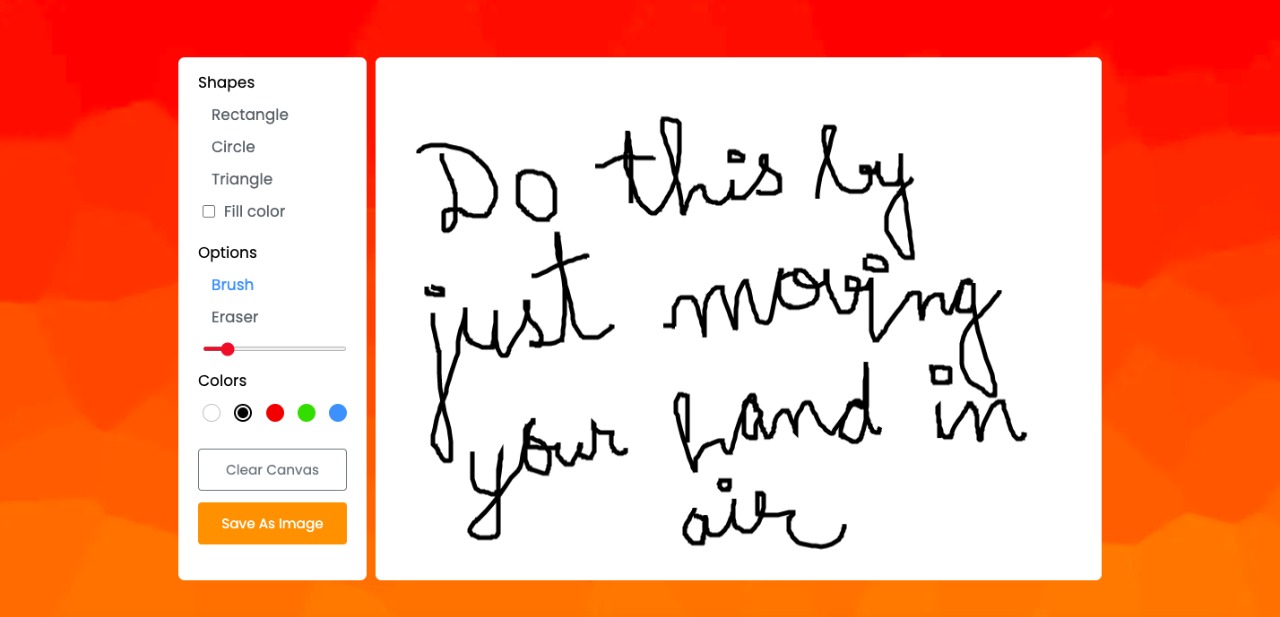 Shapes
Rectangle
Circle
Triangle
Fill color
Options
Brush
Eraser
Colors
Clear Canvas
Save As Image
Do this by
just moving
your hand in
air